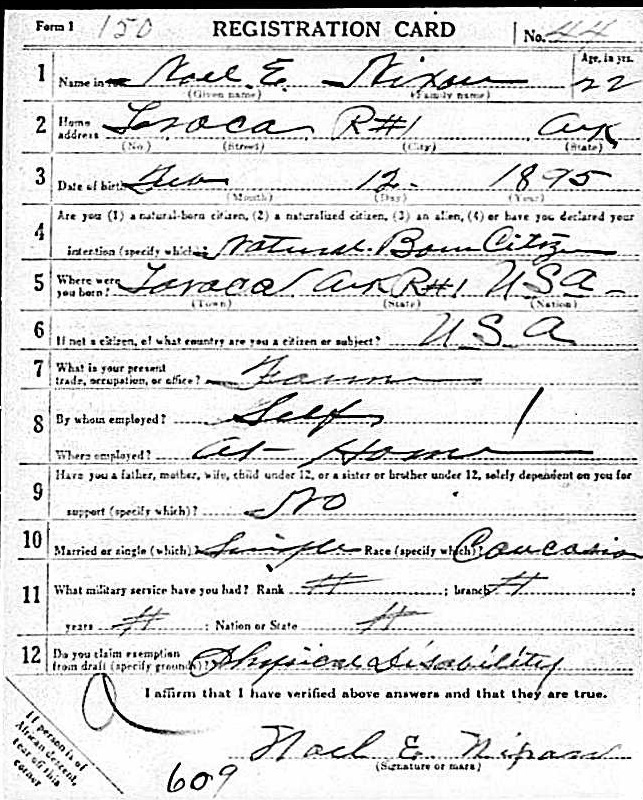 Form 1 150 REGISTRATION CARD No. 44
1 Name in full Noel E. Nixon Age, in yrs. 22
(Given name) (Family name)
2 Home address Tovaca R#1 Ark
(No.) (Street) (City) (State)
3 Date of birth Feb 12 1895
(Month) (Day) (Year)
Are you (1) a natural-born citizen, (2) a naturalized citizen, (3) an alien, (4) or have you declared your
4 intention (specify which)? Natural-Born Citizen
5 Where were you born? Tovaca Ark R#1 USA
(Town) (State) (Nation)
6 If not a citizen, of what country are you a citizen or subject? USA
7 What is your present trade, occupation, or office? Farmer
8 By whom employed? Self
Where employed? At Home
9 Have you a father, mother, wife, child under 12, or a sister or brother under 12, solely dependent on you for
support (specify which)? No
10 Married or single (which)? Single Race (specify which)? Caucasian
11 What military service have you had? Rank # ; branch # ;
years # ; Nation or State #
12 Do you claim exemption from draft (specify grounds)? Physical Disability
I affirm that I have verified above answers and that they are true.
If person is of
African descent,
tear off this
corner
609 Noel E Nixon
(Signature or mark)